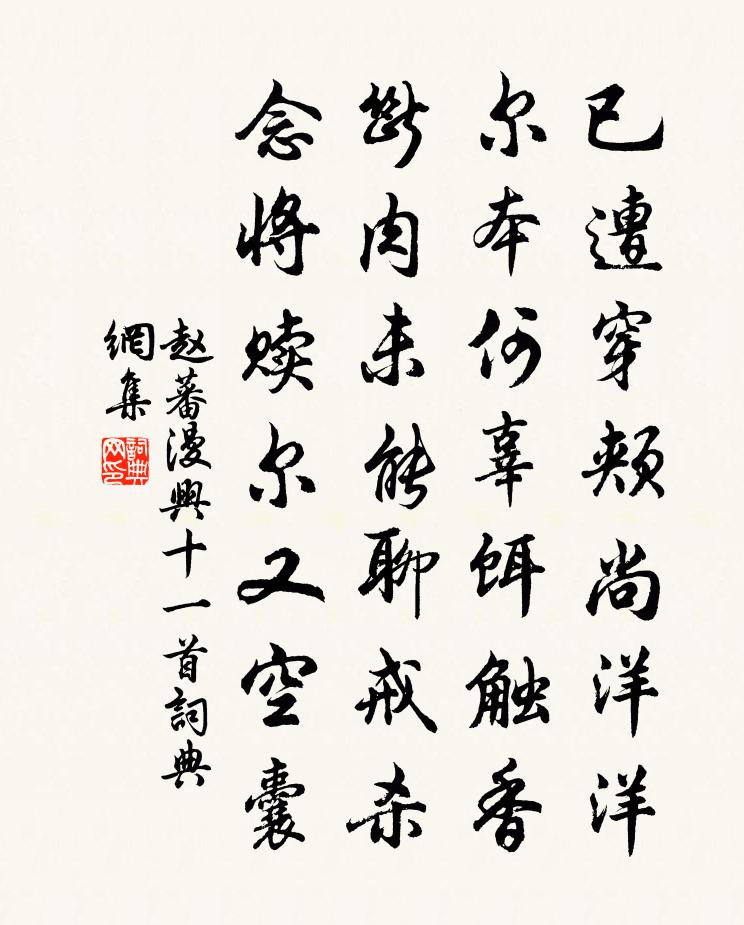 已遭穿颊尚洋洋
尔本何辜饵触香
斷肉未能聊戒杀
念将赎尔又空囊
赵蕃漫興十一首詞典
網集
詞典网印